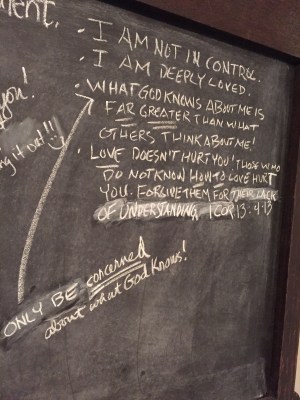 ment.
• I AM NOT IN CONTROL.
• I AM DEEPLY LOVED.
• WHAT GOD KNOWS ABOUT ME IS
FAR GREATER THAN WHAT
OTHERS THINK ABOUT ME!
• LOVE DOESN'T HURT YOU! THOSE WHO
DO NOT KNOW HOW TO LOVE HURT
YOU. FORGIVE THEM FOR THEIR LACK
OF UNDERSTANDING, 1 COR 13:4-13
you!
ng it out!!!
ONLY BE concerned
about what God knows!